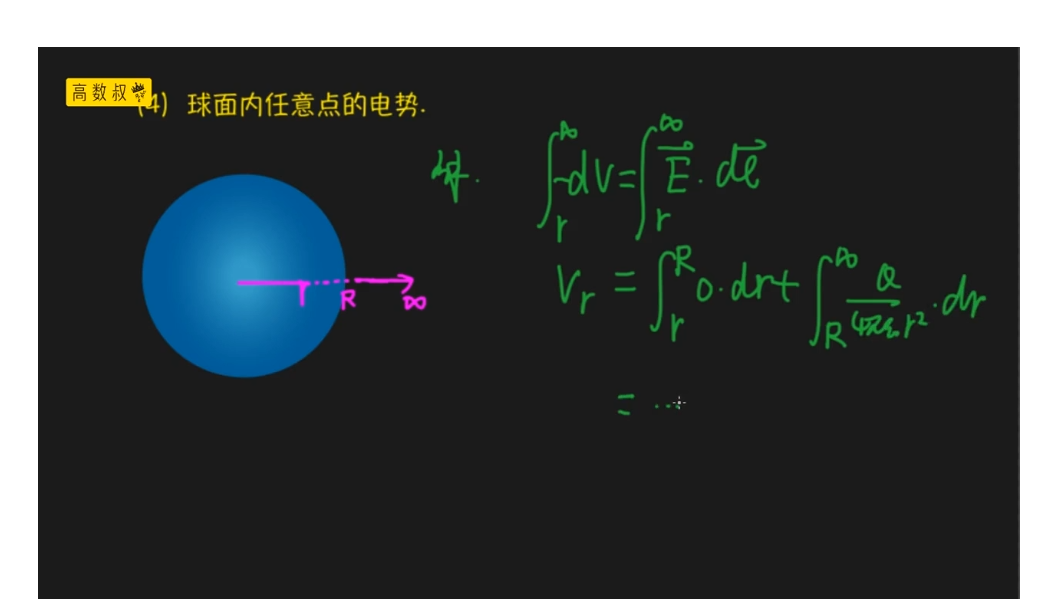 高数叔
(4) 球面内任意点的电势.
解.
∫_r^∞ -dV = ∫_r^∞ E⃗ · dl⃗
V_r = ∫_r^R 0·dr + ∫_R^∞ Q/(4πε₀r²) · dr
r R ∞
= ...